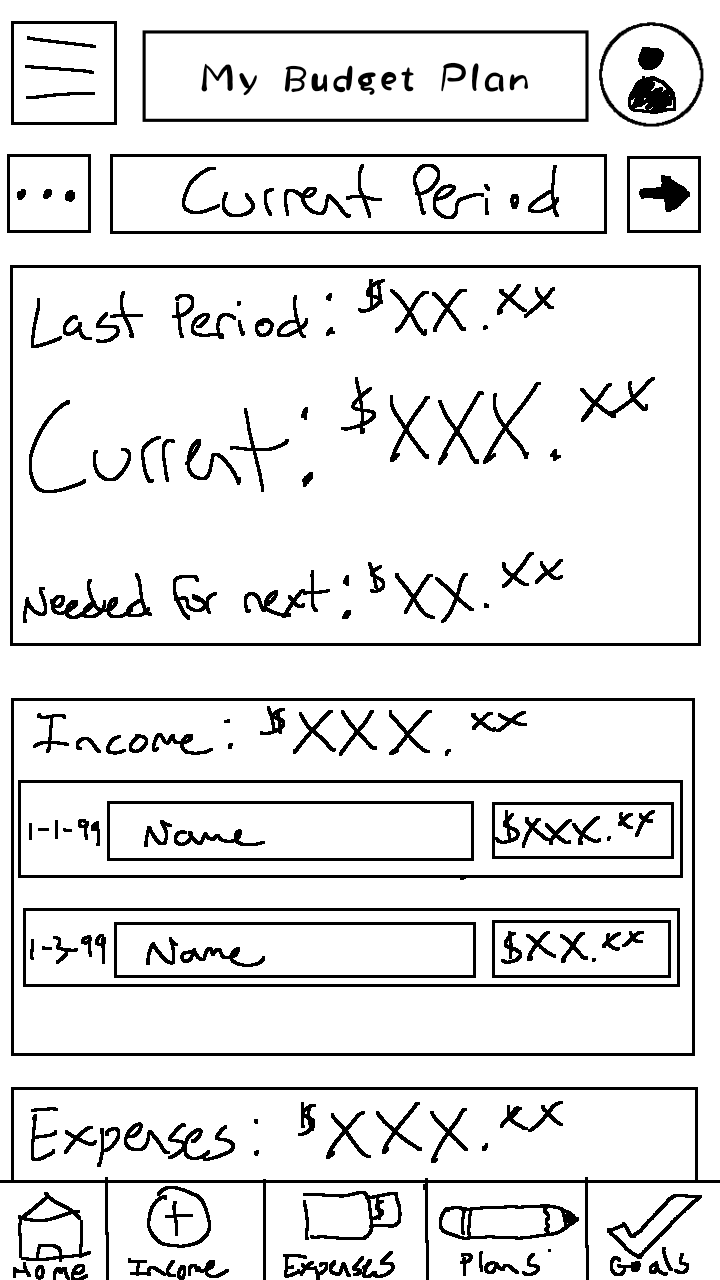 My Budget Plan
... Current Period
Last Period: $XX.XX
Current: $XXX.XX
Needed for next: $XX.XX
Income: $XXX.XX
1-1-99 Name $XXX.XX
1-3-99 Name $XX.XX
Expenses: $XXX.XX
$
Home Income Expenses Plans Goals